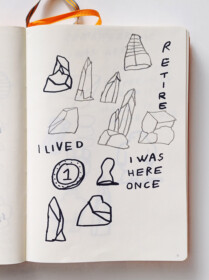 RETIRE
I LIVED
1
I WAS
HERE
ONCE